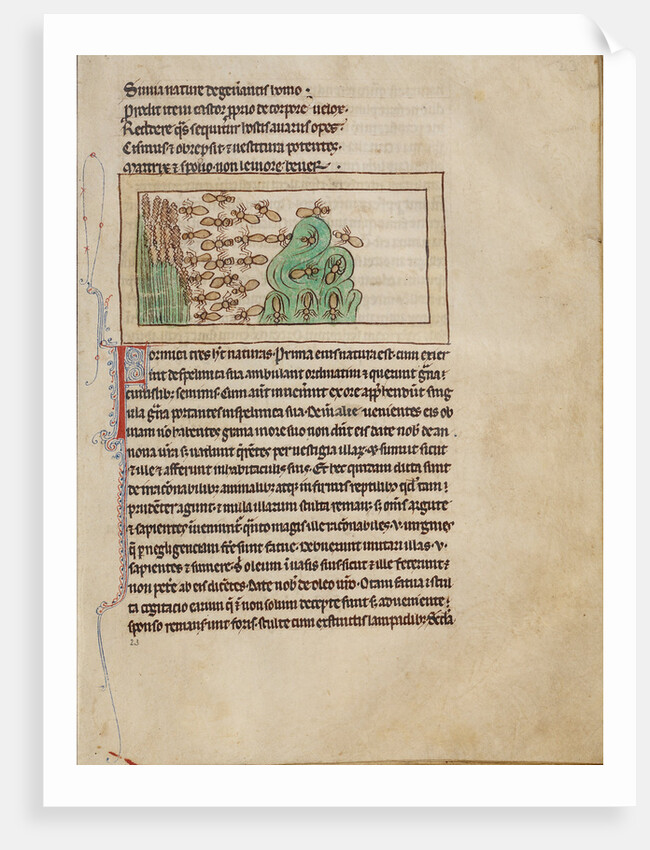 Simia nature degen̄antis homo .
Prodit item castor p̄prio de corpore uelox .
Reddere q̄s sequit̄ur hostis auarus opes .
Cismus & obrepsit & uestitura potentes .
Matrix & spolio non leuiore beuer .
Formica tres hȳt naturas . Prima eius natura est . cum exier
int de spelunca sua ambulant ordinatim & querunt ḡna
cuiuslib; seminis . Cum aūt inuenerint ex ore apprehendunt sing
ula ḡna portantes in spelunca sua . Dein̄ alie uenientes eis ob
uiam n̄ habentes grana in ore suo non dn̄t eis date nob̄ de an
nona ur̄a s; uadunt q̄rentes per uestigia illaꝝ . & sumūt sicut
& ille & afferunt in habitaculis suis . Et hec quidam dicta sunt
de irrac̄onabilib; animalib; atq; infirmis reptilib; qd̄ tam
prudent̄ agunt . & nulla illarum stulta reman; s; om̄s argute
& sapientes inueniunt̄ . q̄nto magis ille rac̄onabiles . v . uirgines
q̄ p̄ negligenciam sūe sunt fatue . Debuerunt imitari illas . v .
sapientes & sumere s; oleum ī uasis suis sicut & ille fecerunt &
non pet̄e ab eis dicentes . Date nob̄ de oleo ur̄o . O tam fatua & stul
ta cogitacio earum q̄ n̄ non solum decepte sunt s; adueniente
sponso remanserunt foris . stulte cum extinctis lampadib; Secl̄a
23